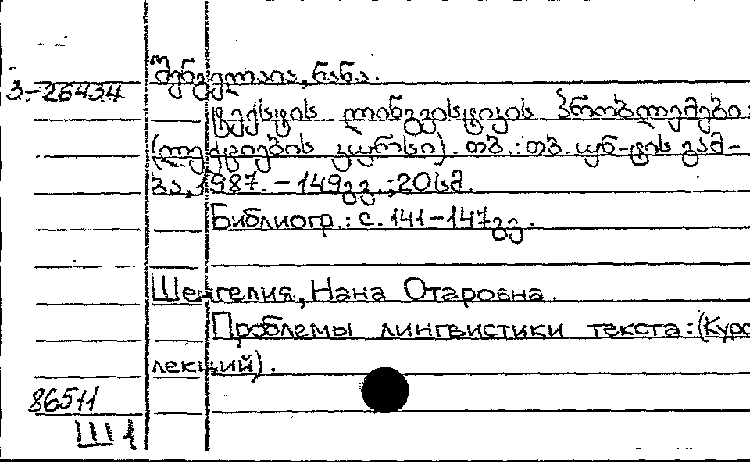 შენგელია, ნანა.
3.-26434
ტექსტის ლინგვისტიკის პრობლემები:
(ლექციების კურსი). თბ.: თბ. უნ-ტის გამ-
ბა, 1987. - 149გვ.; 20სმ.
Библиогр.: с. 141-147გვ.
Шенгелия, Нана Отаровна.
Проблемы лингвистики текста: (Курс
лекций).
86511
Ш1